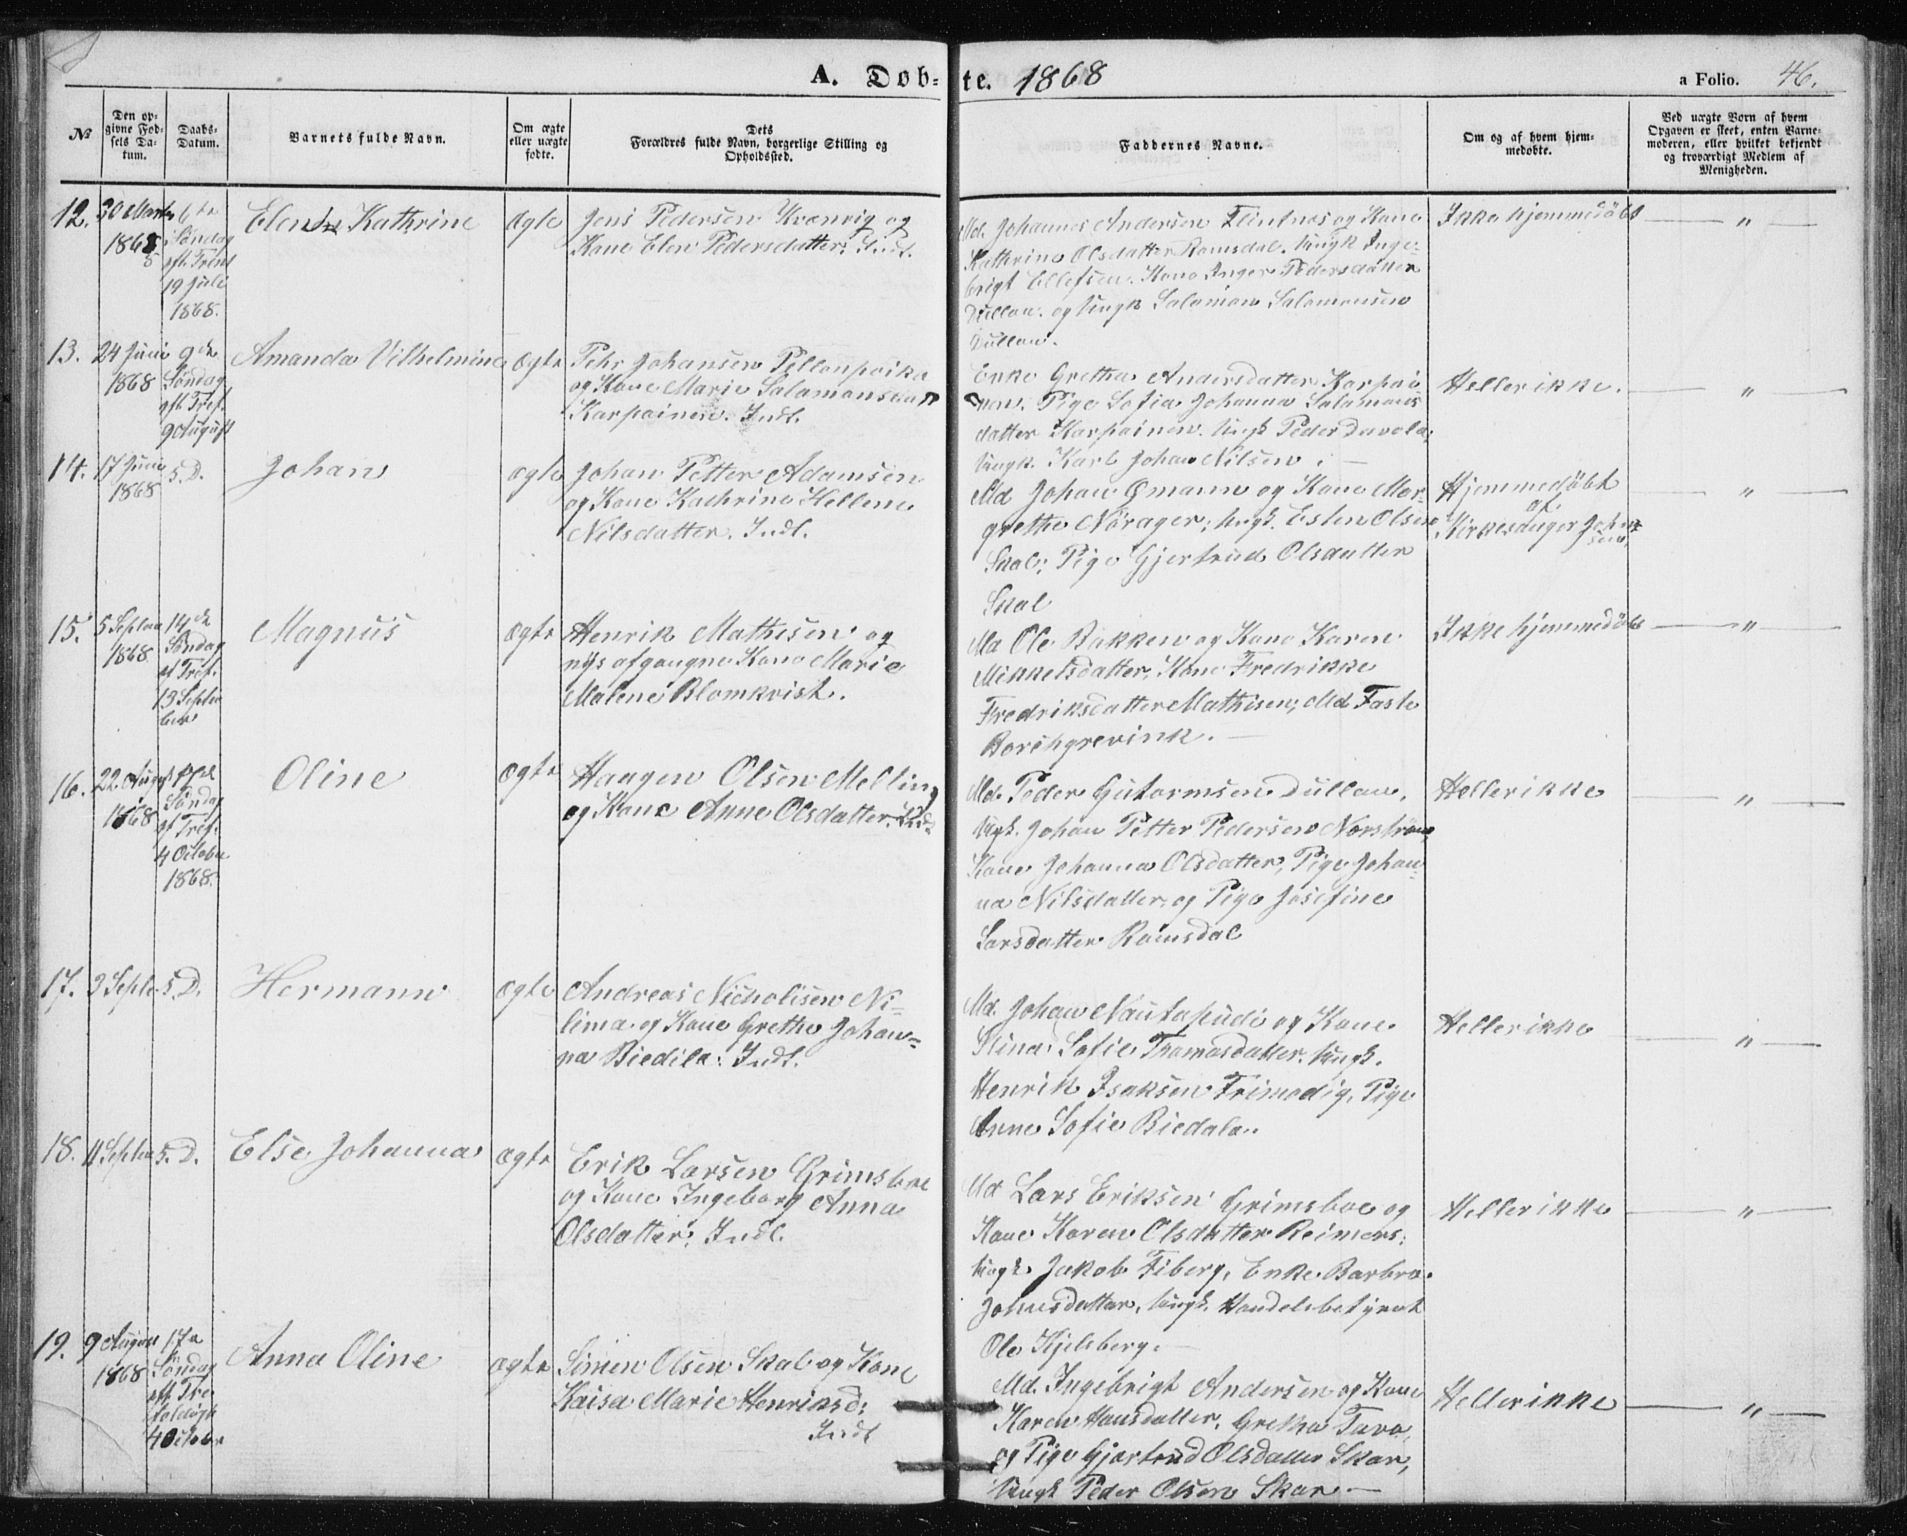 A. Døb-te. 1868
a Folio. 46.
№
Den opgivne Fødsels Datum.
Daabs-Datum.
Barnets fulde Navn.
Om ægte eller uægte fødte.
Dets Forældres fulde Navn, borgerlige Stilling og Opholdssted.
Faddernes Navne.
Om og af hvem hjemmedøbte.
Ved uægte Børn af hvem Opgaven er skeet, enten Barnemoderen, eller hvilket bekjendt og troværdigt Medlem af Menigheden.
12.
30 Marts
1868
6te
Søndag
eft Trent
19 Juli
1868.
Elen Kathrine
Ægte
Jens Pedersen Kvænvig og
Kone Elen Pedersdatter: Indt.
Md. Johannes Andersen Flintnes og Kone
Kathrine Olsdatter Ramsdal. Ungk Inge-
brigt Ellefsen. Kone Inger Pedersdatter
Dullau. og Ungk Salamon Salomonsen
Dullau.
Ikke hjemmedøbt
— " —
13.
24 Juni
1868
9de
Søndag
eft Tref.
9 August
Amanda Vilhelmine
Ægte
Pehr Johansen Pellonpoika
og Kone Marie Salamonsdatt
Karpainen. Indt.
Enke Grethe Andersdatter Karpai
nen. Pige Sofia Johanna Salamons
datter Karpainen. Ungk Peder Davola;
Ungk. Karl Johan Nilsen. —
Heller ikke.
— " —
14.
17 Juni
1868
S. D.
Johan
ægte
Johan Petter Adamsen
og Kone Kathrine Hellene
Nilsdatter. Indt.
Md Johan Qmann og Kone Mar-
grethe Nørager; Ungk. Esten Olsen
Skal; Pige Gjertrud Olsdatter
Skal
Hjemmedøbt
af
Kirkesanger John-
sen.
— " —
15.
5 Septem
1868
14de
Søndag
ef Tref.
13 Septem
ber
Magnus
Ægte
Henrik Mathisen og
nys afgangne Kone Marie
Malene Blomkvist.
Md Ole Bakken og Kone Karen
Mikkelsdatter, Kone Fredrikke
Fredriksdatter Mathisen; Md Faste
Borchgrevink. —
Ikke hjemmedøbt
— " —
16.
22 August
1868
17de
Søndag
ef Tref.
4 October
1868.
Oline
Ægte
Haagen Olsen Melling
og Kone Anne Olsdatter. Indt.
Md. Peder Gutormsen Dullau.
Ungk. Johan Petter Pedersen Norstrøm,
Kone Johanna Olsdatter, Pige Johan-
na Nilsdatter, og Pige Josefine
Larsdatter Ramsdal
Heller ikke
— " —
17.
3 Septe
S. D.
Hermann
Ægte
Andreas Nicholisen Ni-
lima og Kone Grethe Johan-
na Biedila: Indt.
Md. Johan Nautapudi og Kone
Stina Sofie Thomasdatter. Ungk.
Henrik Isaksen Frimodig, Pige
Anne Sofie Biedala.
Heller ikke
— " —
18.
11 Septem
S. D.
Else Johanna
Ægte
Erik Larsen Grimsboe
og Kone Ingeborg Anna
Olsdatter: Indt.
Md Lars Eriksen Grimsboe og
Kone Karen Olsdatter Reimers;
Ungk. Jakob Fiberg, Enke Barbro
Johnsdatter, Ungk. Handelsbetjent
Ole Kjelsberg. —
Heller ikke
— " —
19.
9 August
1868
17de
Søndag
eft Tre
foldigh
4 October
Anna Oline
ægte
Simen Olsen Skal og Kone
Kaisa Marie Henriksd:
Indt
Md. Ingebrigt Andersen og Kone
Karen Hansdatter. Gretha Tava,
og Pige Gjertrud Olsdatter Skar,
Ungk Peder Olsen Skar. —
Heller ikke
— " —